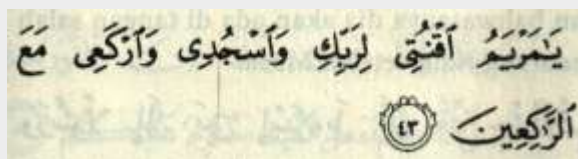 يَٰمَرْيَمُ ٱقْنُتِى لِرَبِّكِ وَٱسْجُدِى وَٱرْكَعِى مَعَ
ٱلرَّٰكِعِينَ ٤٣